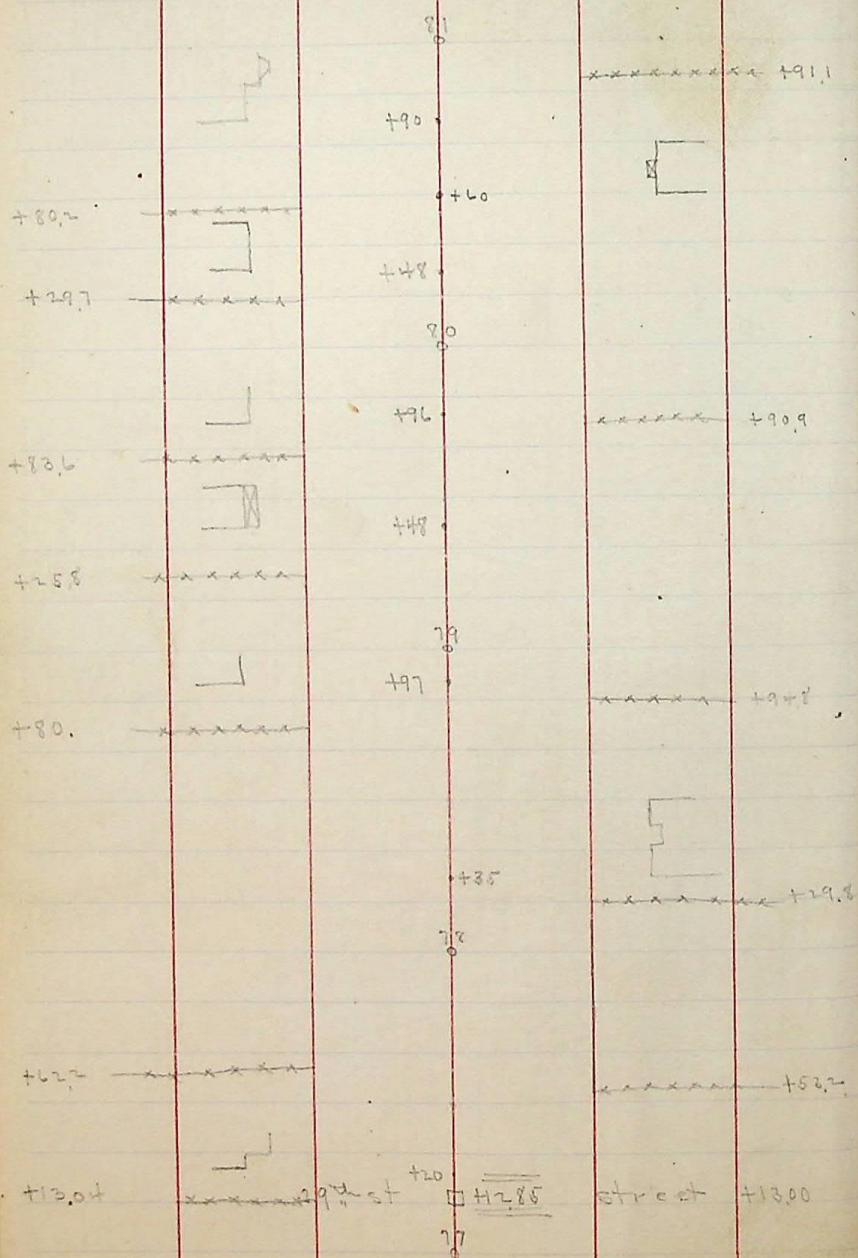 81
+91,1
+90
+60
+80,2
+48
+29,7
80
+96 +90,9
+83,6
+48
+25,8
79
+97 +94,8
+80.
+35
+29.8
78
+62,2
+53,2
+20
+13,04 29th st +12,85 street +13,00
77